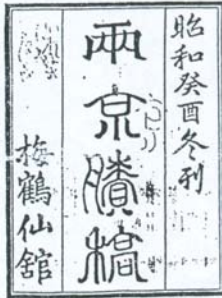 昭和癸酉冬刊
兩京賸稿
梅鶴仙館